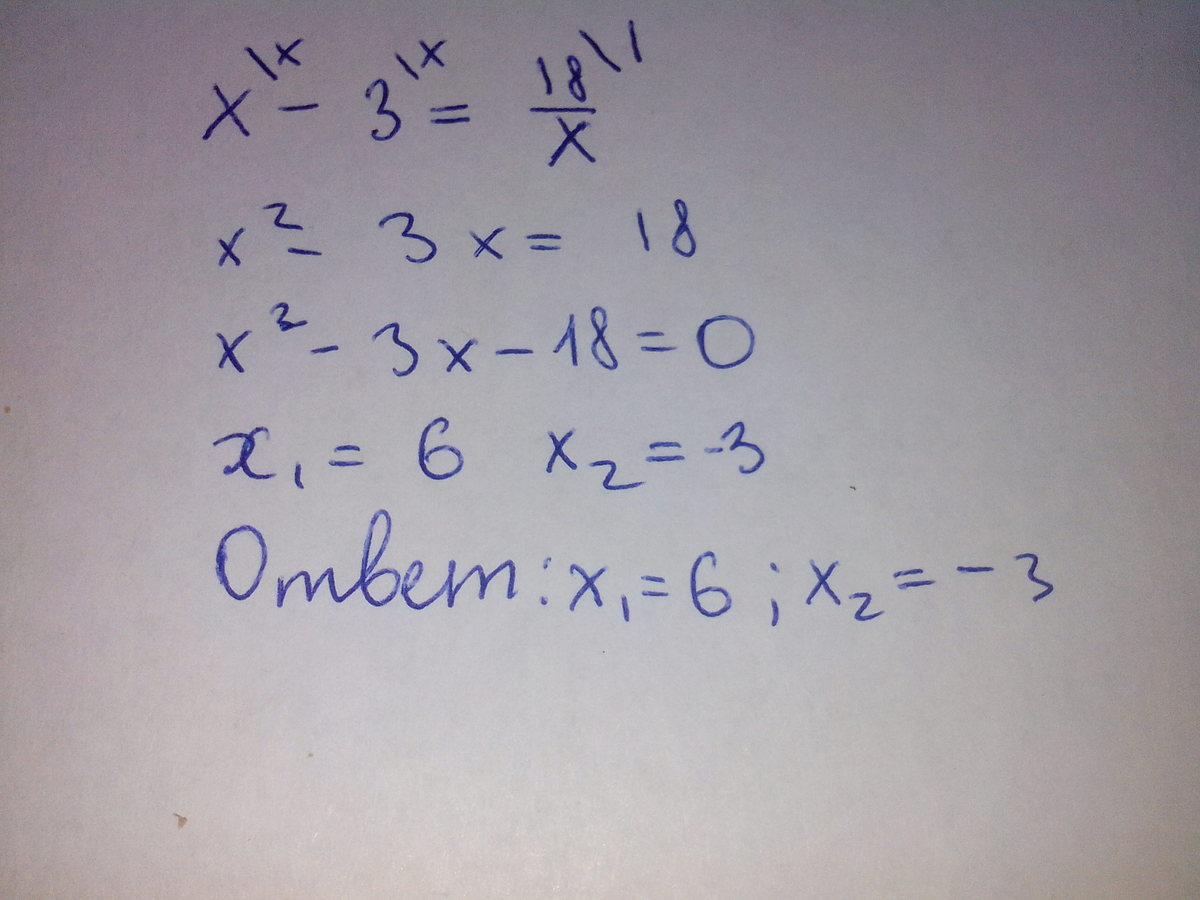 x\x - 3\x = 18\1/x
x² - 3x = 18
x² - 3x - 18 = 0
x₁ = 6 x₂ = -3
Ответ: x₁ = 6 ; x₂ = -3